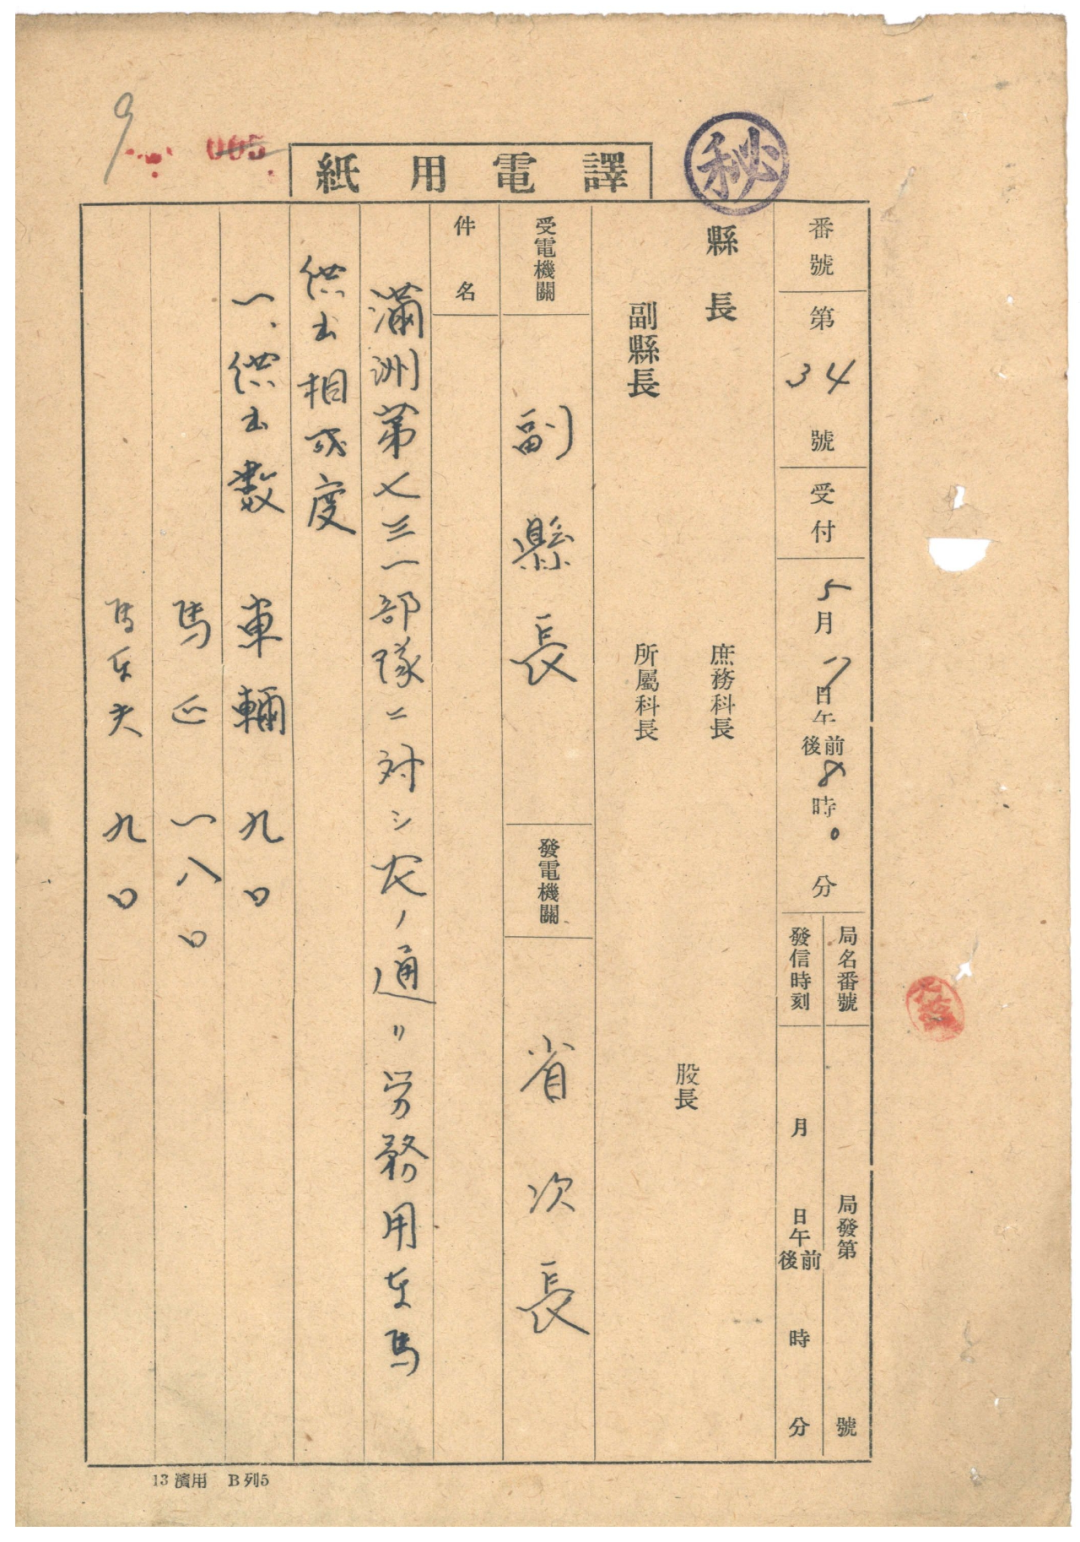 譯電用紙
秘
005
9
番號 第34號 受付 5月17日午前後8時0分
局名番號 局發第 號
發信時刻 月 日午前後 時 分
縣長 庶務科長
股長
副縣長 所屬科長
受電機關 副縣長 發電機關 省次長
件名
滿洲第七三一部隊ニ対シ次ノ通リ労務用車馬
供出相成度
一、供出数 車輛 九〇
馬匹 一八〇
馬車夫 九〇
13濱用 B列5